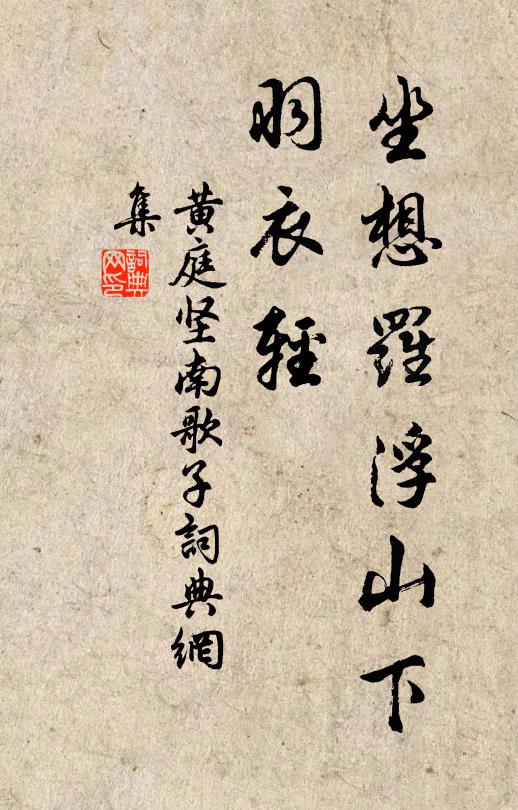 坐想羅浮山下
羽衣輕
黄庭坚南歌子詞典網
集
詞典
网印